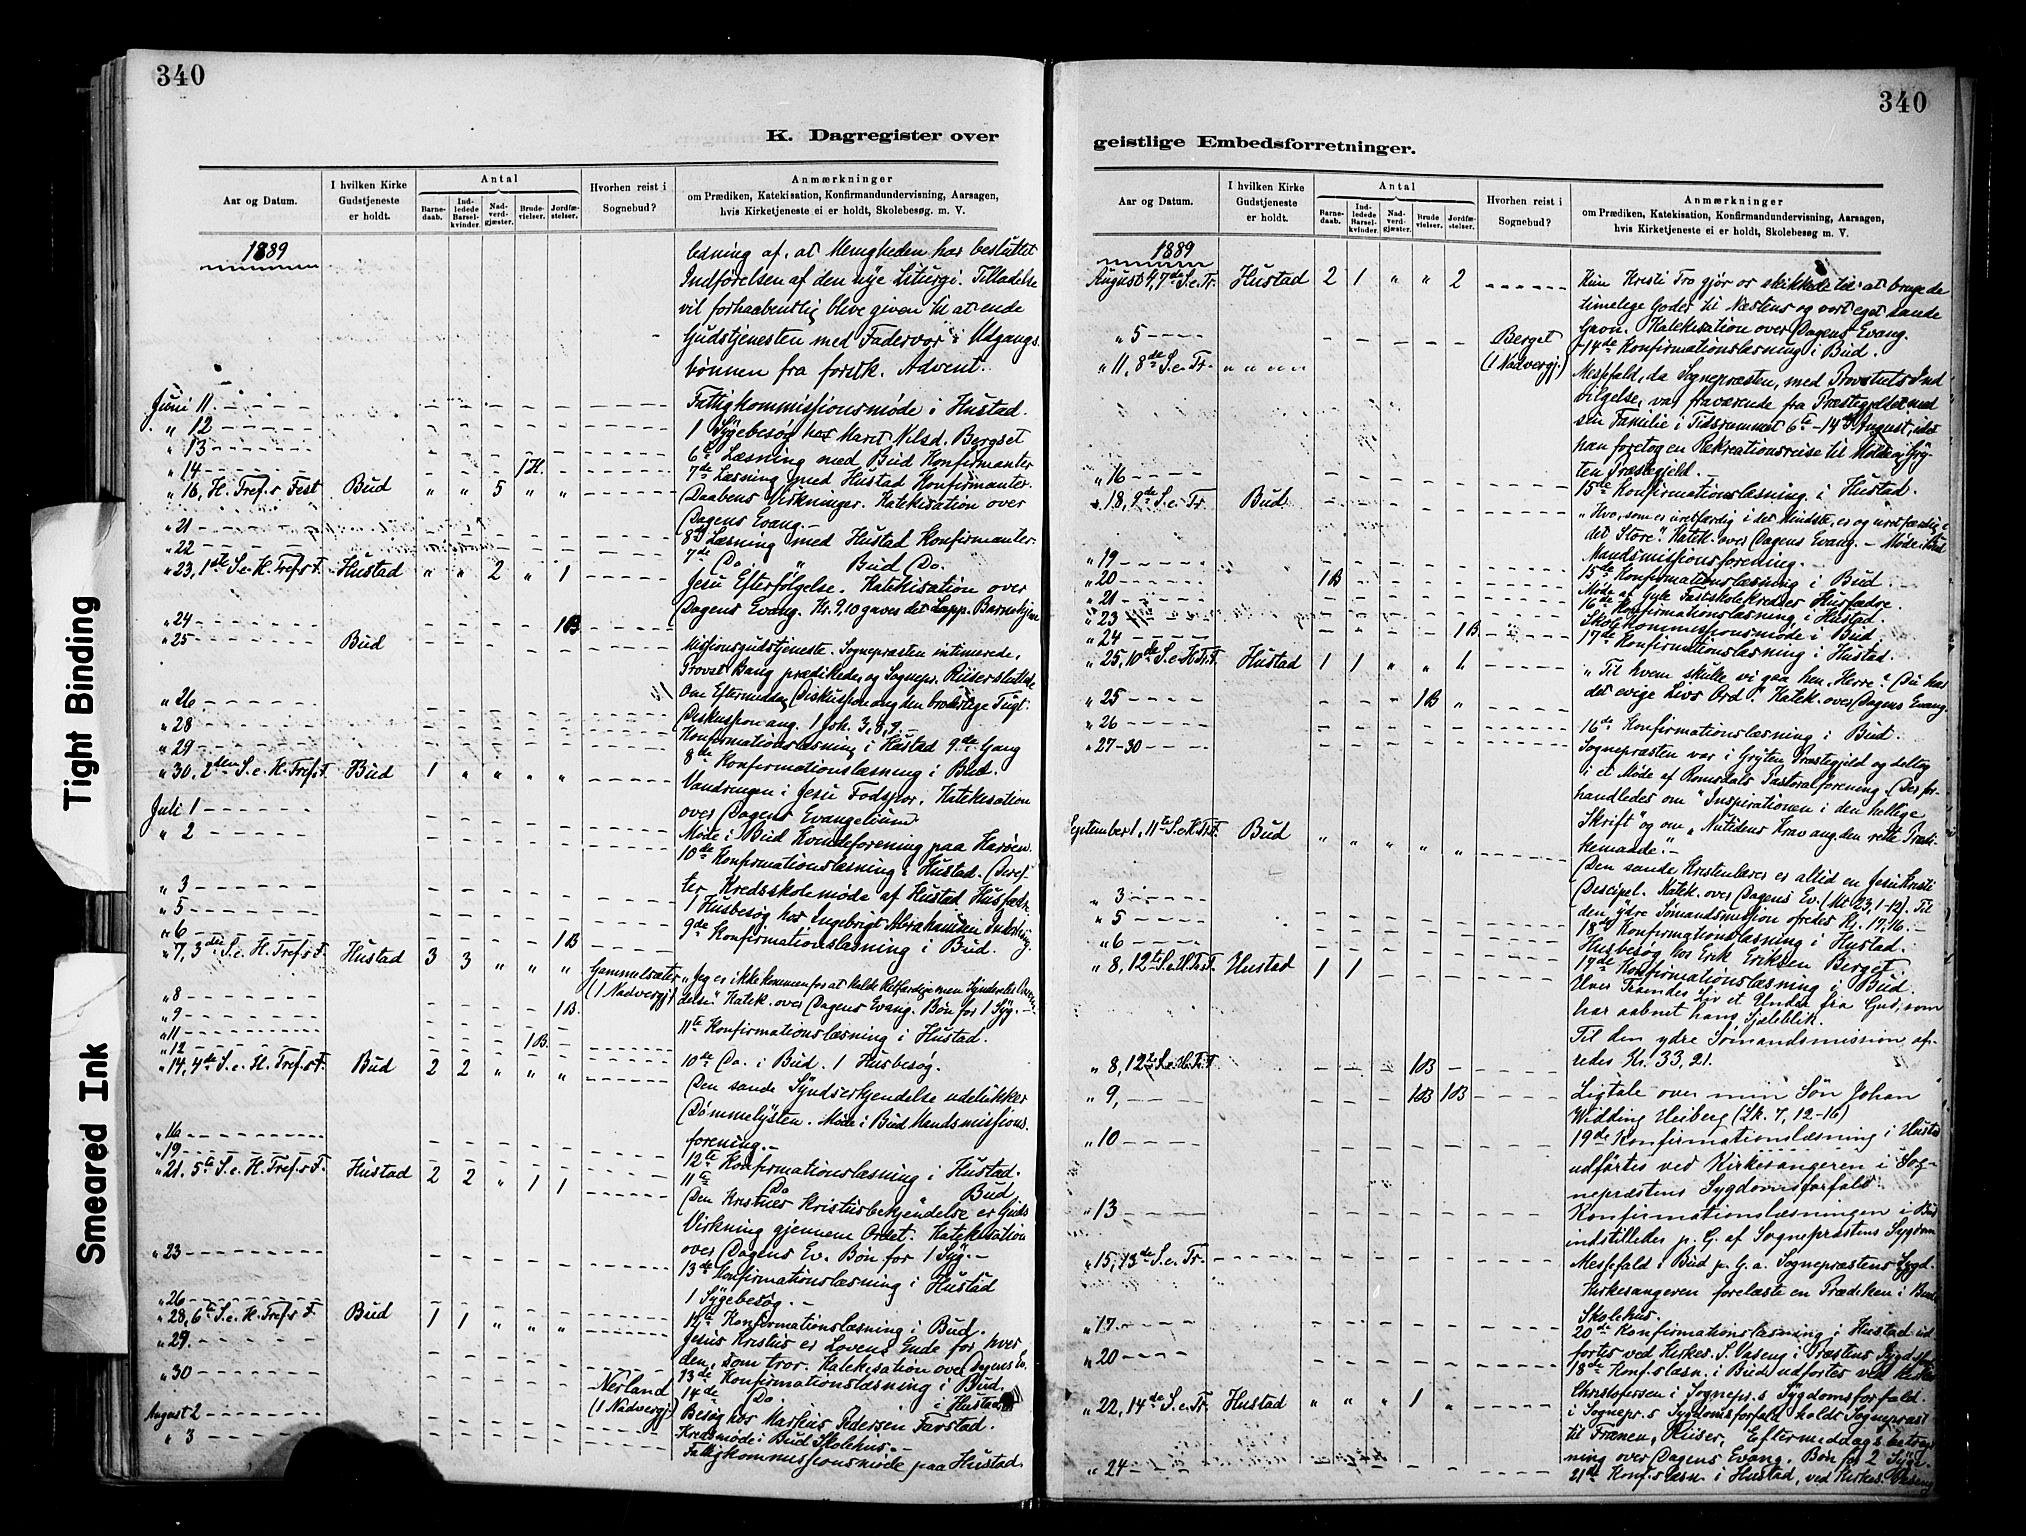 340
K. Dagregister over
Aar og Datum.
I hvilken Kirke Gudstjeneste er holdt.
Antal
Barne-daab.
Ind-ledede Barsel-kvinder.
Nad-verd-gjæster.
Brude-vielser.
Jordfæ-stelser.
Hvorhen reist i Sognebud?
Anmærkninger
om Prædiken, Katekisation, Konfirmandundervisning, Aarsagen,
hvis Kirketjeneste ei er holdt, Skolebesøg m. V.
1889
ledning af, at Menigheden har besluttet
Indførelsen af den nye Liturgi. Tilladelse
vil forhaabentlig blive given til at ende
Gudstjenesten med Fadervor i Udgangs-
bønnen fra førstk. Advent.
Juni 11. Fattigkommissionsmøde i Hustad.
" 12 1 Sygebesøg hos Maret Nilsd. Bergset
" 13 6te Læsning med Bud Konfirmanter
" 14 1H. 7de Læsning med Hustad Konfirmanter.
" 16, H. Tref.s Fest Bud " " 5 " " Daabens Virkninger. Katekisation over
Dagens Evang.
" 21 8de Læsning med Hustad Konfirmanter.
" 22 7de Do. " Bud Do.
" 23, 1ste S. e. H. Tref.s F. Hustad " " 2 " 1 Jesu Efterfølgelse. Katekisation over
Dagens Evang. Kr. 9,10 gaves det Lapp. Barnehjem
" 24 1B
" 25 Bud Missionsgudstjeneste. Sognepræsten intimerede,
Provst Bang prædikede og Sognepr. Riiser sluttede
Om Eftermiddag Diskussion ang. den broderlige Tugt.
" 26 Diskussion ang. 1 Joh. 3, 8, 9.
" 28 Konfirmationslæsning i Hustad 9de Gang
" 29 8de Konfirmationslæsning i Bud.
" 30, 2den S. e. H. Tref.s F. Bud 1 " " " " Vandringen i Jesu Fodspor. Katekisation
over Dagens Evangelium
Juli 1 Møde i Bud Kvindeforening paa Harøen.
" 2 10de Konfirmationslæsning i Hustad. Deref-
ter Kredsskolemøde af Hustad Husfædre
" 3 1 Husbesøg hos Ingebrigt Abrahamsen
" 5 9de Konfirmationslæsning i Bud.
" 6 1B
" 7, 3die S. e. H. Tref.s F. Hustad 3 3 " " " Gammelsæter (1 Nadvergj.) "Jeg er ikke kommen for at kalde Retfærdige men Syndere til Omven-
" 8 delse." Katek. over Dagens Evang. Bøn for 1 Syg.
" 9 1B.
" 11 11te Konfirmationslæsning i Hustad.
" 12 1B. 10de Do. i Bud. 1 Husbesøg.
" 14, 4de S. e. H. Tref.s F. Bud 2 2 " " " Den sande Syndserkjendelse udelukker
Dømmelysten. Møde i Bud Mandsmissions-
forening.
" 16 12te Konfirmationslæsning i Hustad.
" 19 11te Do Bud
" 21, 5te S. e. H. Tref.s F. Hustad 2 2 " 1 1 Den Kristnes Kristusbekjendelse er Guds
Virkning gjennem Ordet. Katekisation
over Dagens Ev. Bøn for 1 Syg.
" 23 13de Konfirmationslæsning i Hustad
1 Sygebesøg.
" 26 12te Konfirmationslæsning i Bud.
" 28, 6te S. e. H. Tref.s F. Bud 1 1 " " " Jesus Kristus er Lovens Ende for hver
den, som tror. Katekisation over Dagens Ev.
" 29. 13de Konfirmationslæsning i Bud.
" 30 14de Do i Hustad
August 2 Nerland (1 Nadvergj.) Besøg hos Markus Pedersen Farstad.
" 3 Kredsmøde i Bud Skolehus.
Fattigkommissionsmøde paa Hustad.
340
geistlige Embedsforretninger.
Aar og Datum.
I hvilken Kirke Gudstjeneste er holdt.
Antal
Barne-daab.
Ind-ledede Barsel-kvinder.
Nad-verd-gjæster.
Brude vielser.
Jordfæ-stelser.
Hvorhen reist i Sognebud?
Anmærkninger
om Prædiken, Katekisation, Konfirmandundervisning, Aarsagen,
hvis Kirketjeneste ei er holdt, Skolebesøg m. V.
1889
August 4, 7de S. e. Tr. Hustad 2 1 " " 2 Kun Kristi Tro gjør os skikkede til at bruge de
timelige Goder til Næstens og vort eget sande
Gavn. Katekisation over Dagens Evang.
" 5 Berget (1 Nadvergj.) 14de Konfirmationslæsning i Bud.
" 11, 8de S. e. Tr. " " " " Messefald, da Sognepræsten, med Provstiets Ind-
vilgelse, var fraværende fra Præstegjeldet med
sin Familie i Tidsrummet 6te-14de August, idet
han foretog en Rekreationsreise til Molde og Gry-
ten Præstegjeld.
" 16 15de Konfirmationslæsning i Hustad.
" 18, 9de S. e. Tr. Bud "Hvo, som er uretfærdig i det Mindste, er og uretfærdig i
det Store". Katek. over Dagens Evang. - Møde i Bud
Mandsmissionsforening.
" 19 15de Konfirmationslæsning i Bud
" 20 1B Møde af Fastskolekredses Husfædre.
" 21 16de Konfirmationslæsning i Hustad.
" 23 Skolekommissionsmøde i Bud.
" 24 1B 17de Konfirmationslæsning i Hustad.
" 25, 10de S. e. H. Tr. F. Hustad 1 1 " " 1 "Til hvem skulle vi gaa hen, Herre? Du har
det evige Livs Ord". Katek. over Dagens Evang.
" 25 1B "
" 26 16de Konfirmationslæsning i Bud.
" 27-30 Sognepræsten var i Gryten Præstegjeld og deltog
i et Møde af Romsdals Pastoralforening. Der for-
handledes om "Inspirationen i den hellige
Skrift" og om "Nutidens Krav ang. den rette Prædi-
kemaade".
September 1, 11te S. e. H. Tr. F. Bud " " " " " Den sande Kristenlærer er altid en Jesu Kristi
Discipel. Katek. over Dagens Ev. (Mt 23, 1-12). Til
den ydre Sømandsmission ofredes Kr. 17,16.
" 3 18de Konfirmationslæsning i Hustad.
" 5 Husbesøg hos Erik Eriksen Berget
" 6 17de Konfirmationslæsning i Bud.
" 8, 12te S. e. H. Tr. F. Hustad 1 1 Hver Trændes Liv et Under fra Gud, som
har aabnet hans Sjæleblik.
Til den ydre Sømandsmission of-
redes Kr. 33,21.
" 8, 12te S. e. H. Tr. F. 1B
" 9, 1B 1B Ligtale over min Søn Johan
Widding Heiberg (Lk. 7, 12-16)
" 10 19de Konfirmationslæsning i Hustad
udførtes ved Kirkesangeren i Sog-
nepræstens Sygdomsforfald.
" 13 Konfirmationslæsningen i Bud
indstilledes p. G. af Sognepræstens Sygdom
" 15, 13de S. e. Tr. Messefald i Bud p. G. a. Sognepræstens Sygd.
Kirkesangeren forelæste en Prædiken i Bud
Skolehus.
" 17. 20de Konfirmationslæsning i Hustad ud-
førtes ved Kirkes. S. Vaseng i Præstens Sygd.
" 20 18de Konf.s læsn. i Bud udførtes ved Kirkes.
Christophersen i Sognepr.s Sygdomsforfald.
" 22, 14de S. e. Tr. Hustad " " " 1 " i Sognepr.s Sygdomsforfald holdt Sognepræst
til Frænen, Riiser, Eftermiddagsbetragt-
ning over Dagens Evang. Bøn for 2 Syge.
" 24 21de Konf.s læsn. i Hustad, ved Kirkes. Vaseng
Tight Binding
Smeared Ink